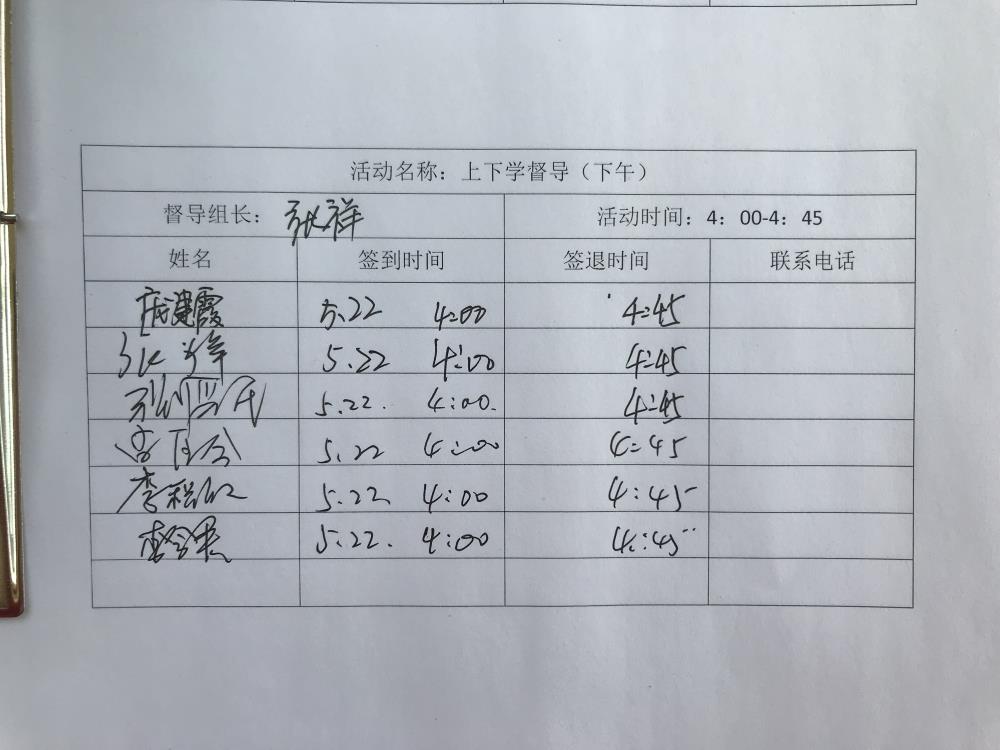 活动名称：上下学督导（下午）
督导组长：张祥 活动时间：4：00-4：45
姓名 签到时间 签退时间 联系电话
5.22 4:00 4:45
5.22 4:00 4:45
5.22. 4:00. 4:45
5.22 4:00 4:45
5.22 4:00 4:45
5.22. 4:00 4:45